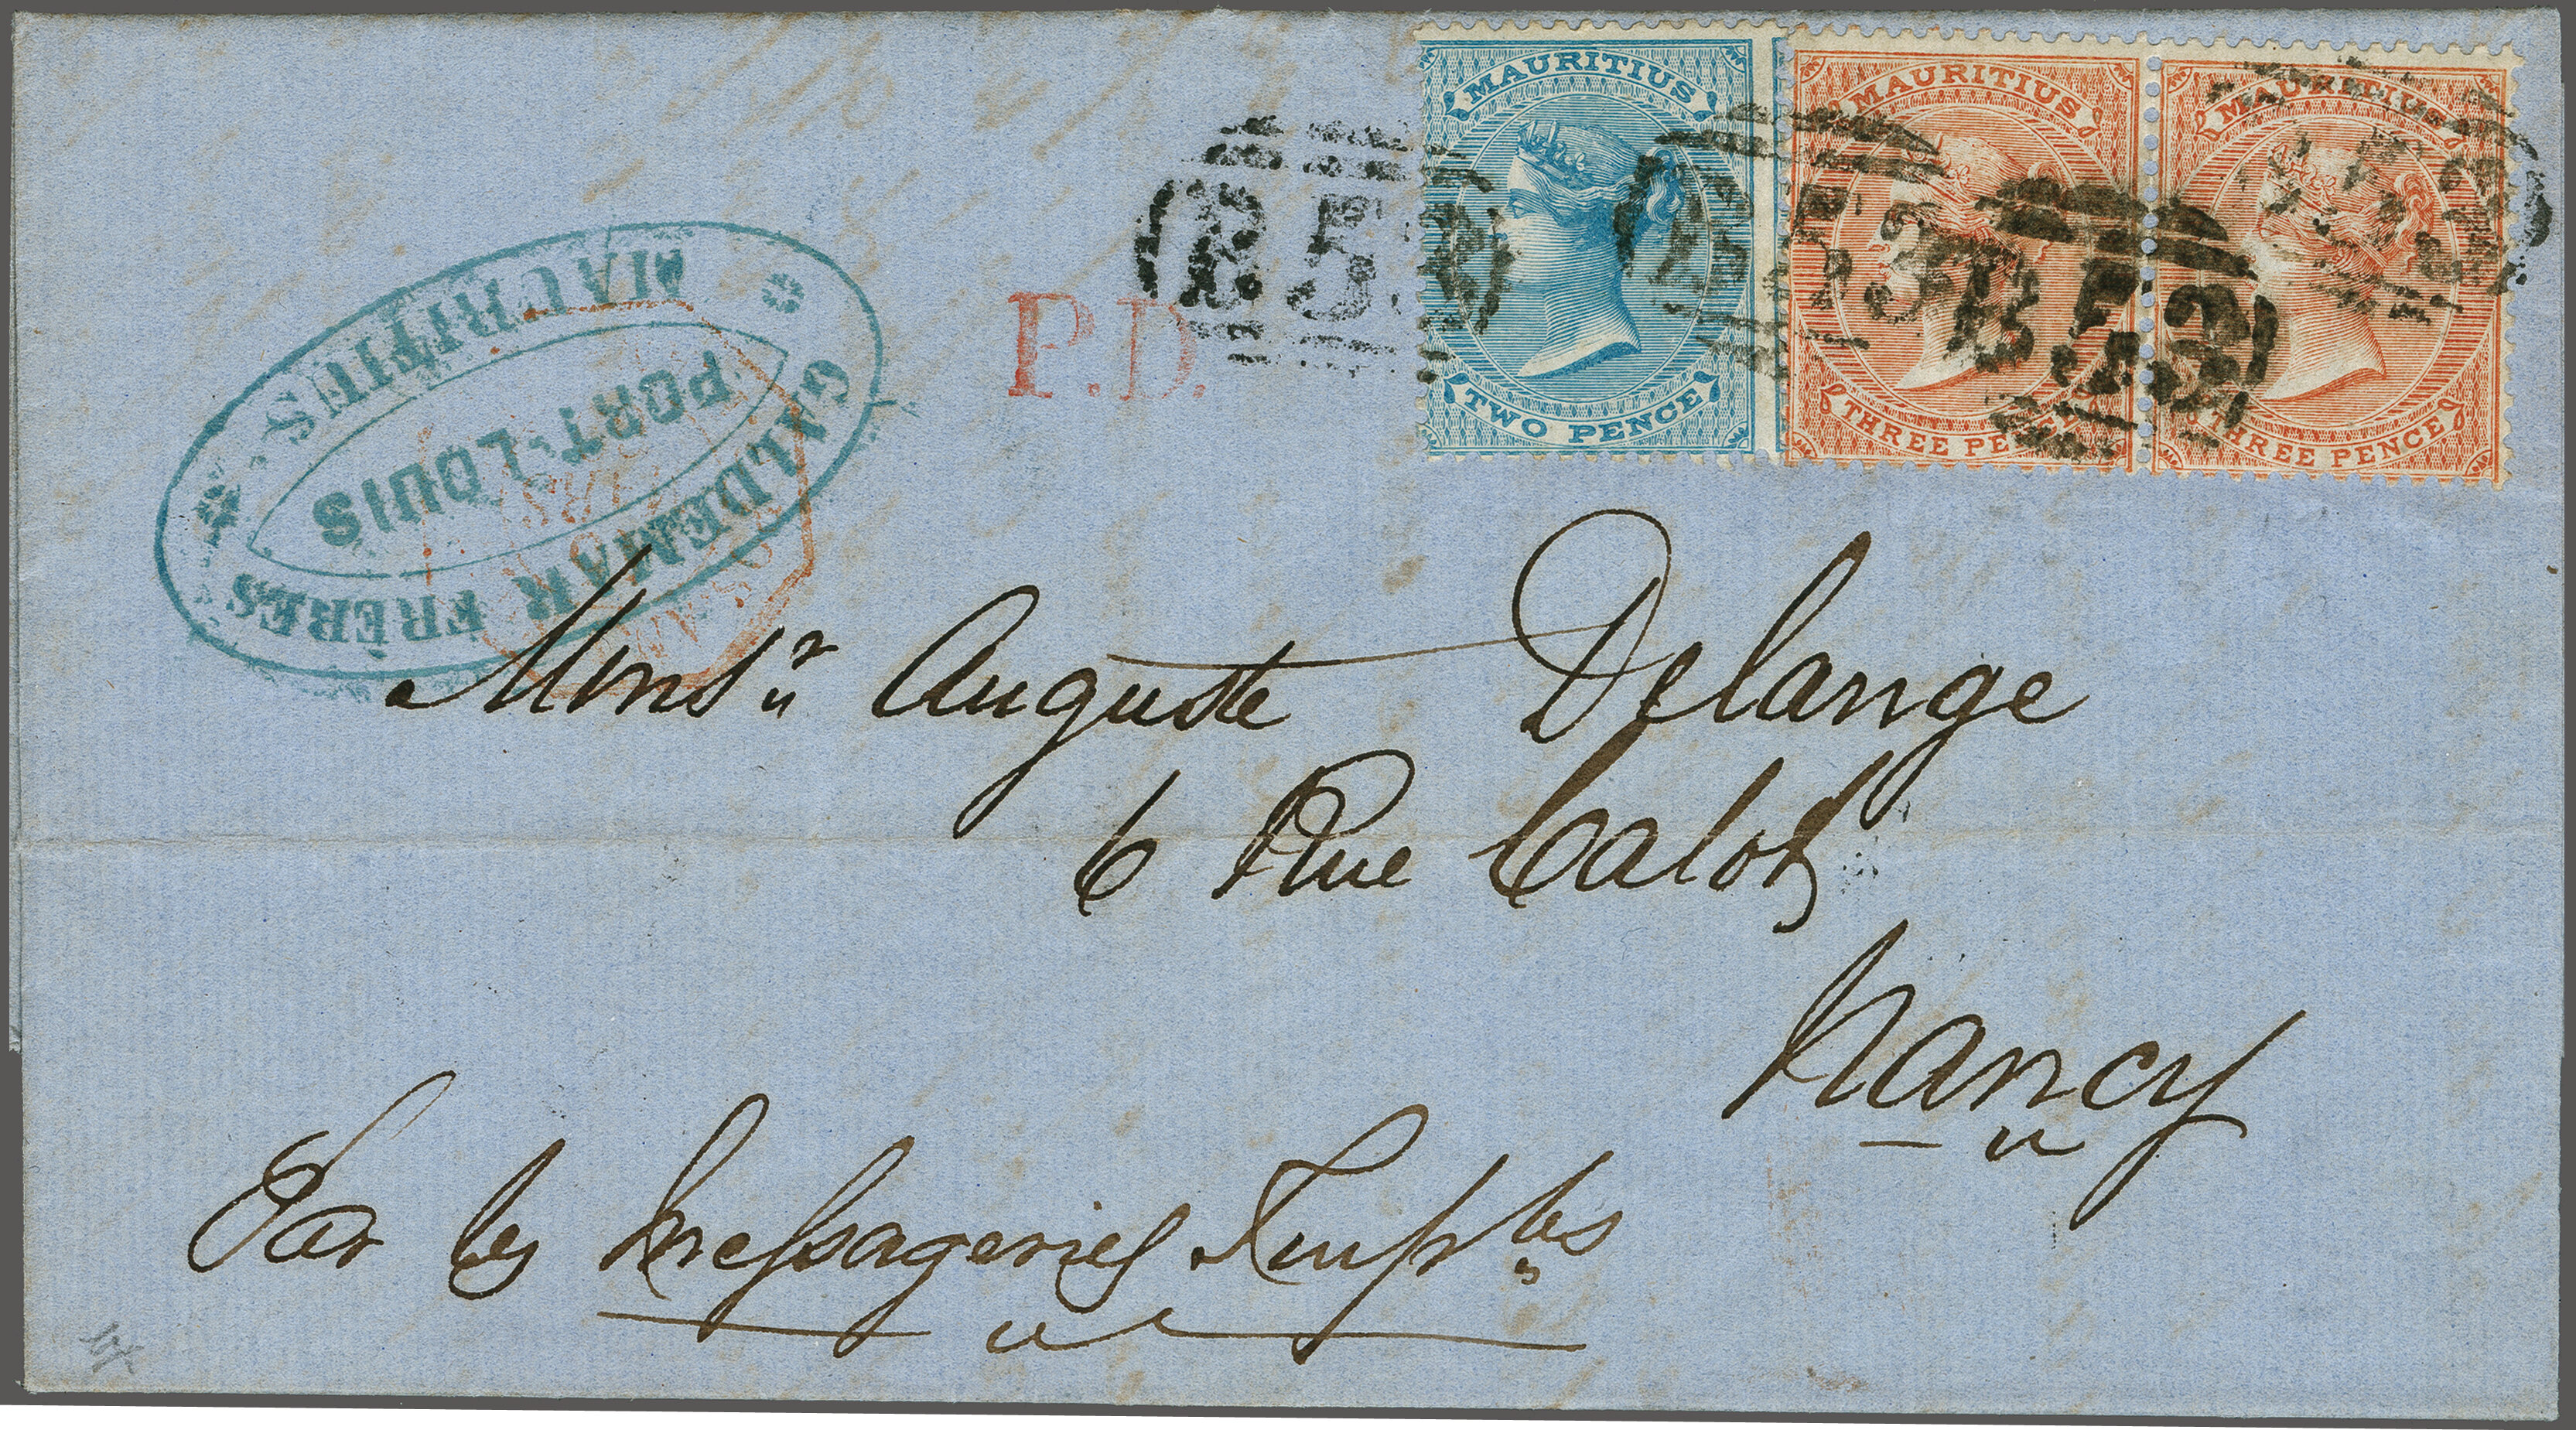 MAURITIUS
TWO PENCE
MAURITIUS
THREE PENCE
MAURITIUS
THREE PENCE
B53
B53
B53
P.D.
GALDEMAR FRÈRES
PORT-LOUIS
MAURITIUS
Monsr Auguste Delange
6 Rue Callot
Nancy
Par les Messageries Imples